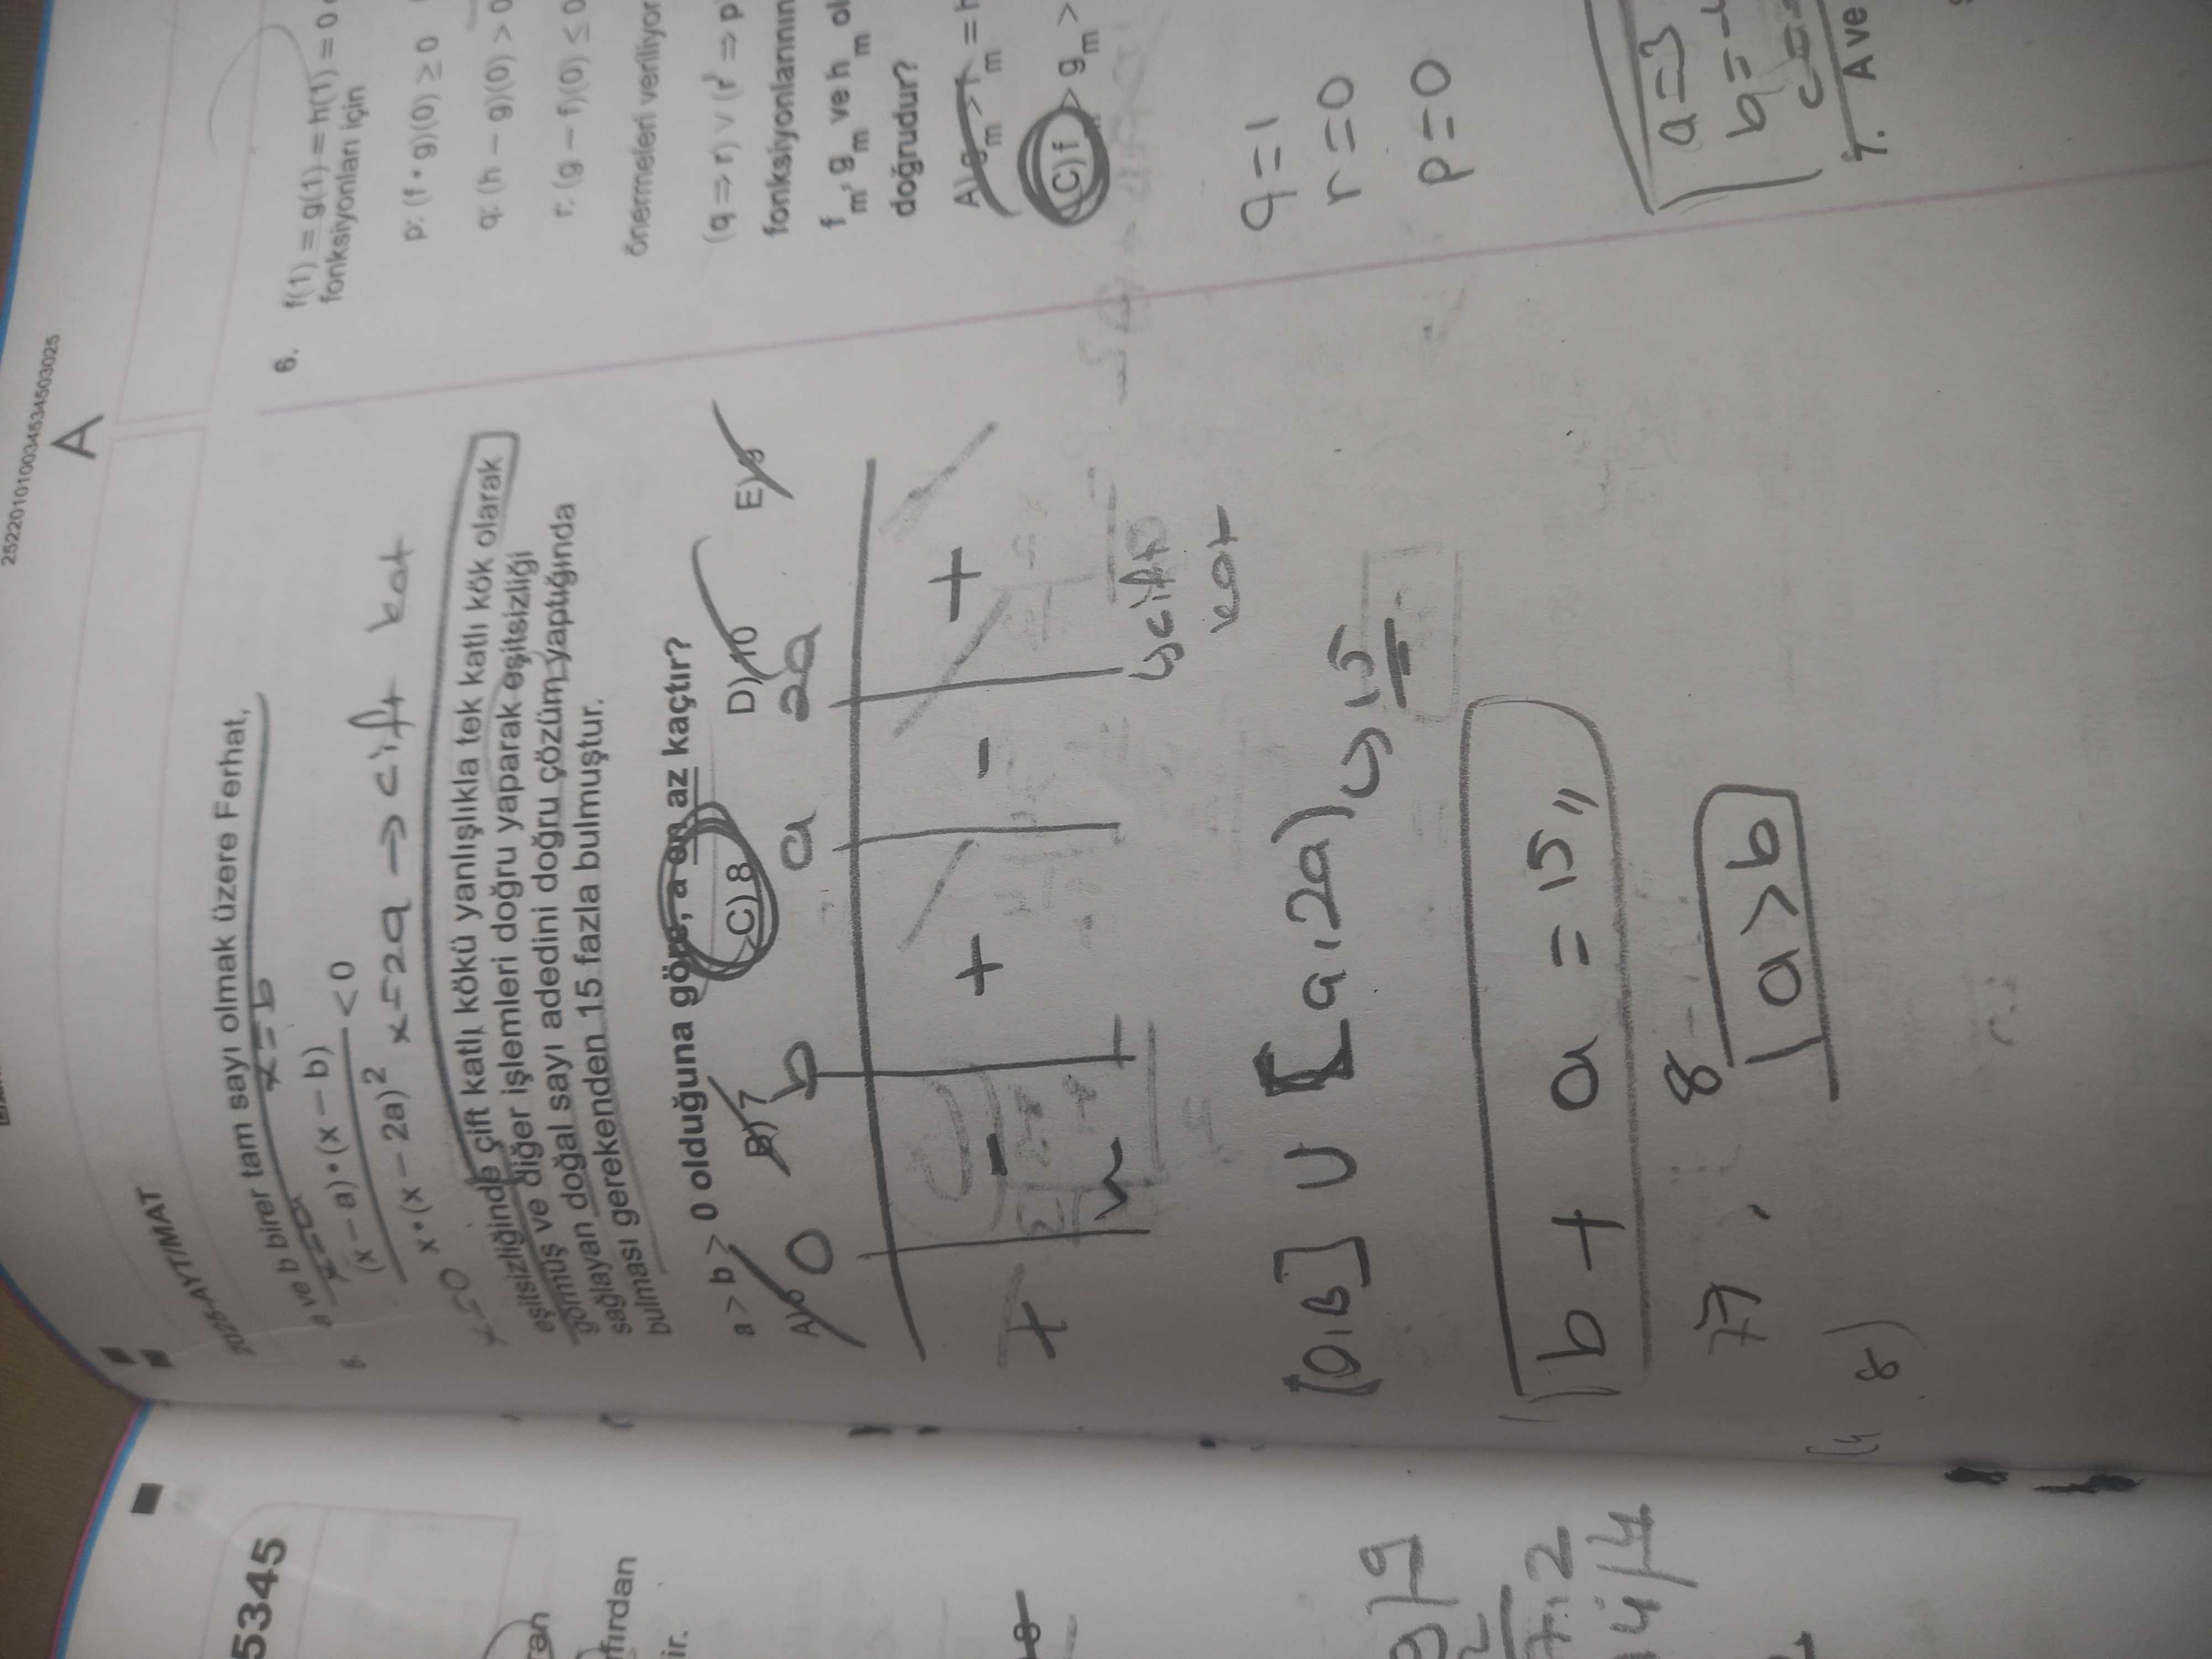 25220101003453453​4503025
A
2025-AYT/MAT
5. a ve b birer tam sayı olmak üzere Ferhat,
x=a
x=b
(x – a)•(x – b)
x•(x – 2a)²
< 0
x=0
x=2a → çift kat
eşitsizliğinde çift katlı kökü yanlışlıkla tek katlı kök olarak
görmüş ve diğer işlemleri doğru yaparak eşitsizliği
sağlayan doğal sayı adedini doğru çözüm yaptığında
bulması gerekenden 15 fazla bulmuştur.
a > b > 0 olduğuna göre, a en az kaçtır?
A) 6
B) 7
C) 8
D) 10
E) 9
0 b a 2a
+ - + - +
çift
kat
[0,B] ∪ [a,2a) 15
b + a = 15
77, 8
a > b
6. f(1) = g(1) = h(1) = 0
fonksiyonları için
p: (f • g)(0) ≥ 0
q: (h – g)(0) > 0
r: (g – f)(0) ≤ 0
önermeleri veriliyor
(q ⇒ r) ∨ (r' ⇒ p
fonksiyonlarının
fm, gm ve hm
doğrudur?
A) gm > fm =
C) f > gm >
q=1
r=0
p=0
a=3
b=-
c=
7. A ve
5345
fırdan
ir.